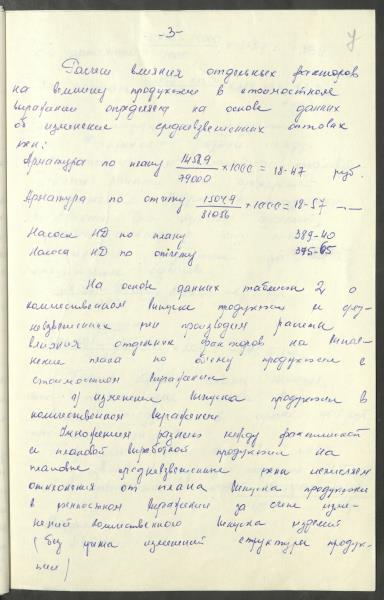 -3-
Расчет влияния отдельных факторов
на величину продукции в стоимостном
выражении определяем на основе данных
об изменении средневзвешенных оптовых
цен:
Арматура по плану 14589/79000 × 1000 = 18-47 руб.
Арматура по отчету 15049/81056 × 1000 = 18-57 —
Насосы НД по плану 389-40
Насоса НД по отчету 395-65
На основе данных таблицы 2 о
количественном выпуске продукции и сред-
невзвешенных цен производим расчеты
влияния отдельных факторов на выпол-
нение плана по объему продукции в
стоимостном выражении
а) изменение выпуска продукции в
количественном выражении
Умножением разницы между фактической
и плановой выработкой продукции на
плановые средневзвешенные цены исчисляем
отклонения от плана выпуска продукции
в ценностном выражении за счет изме-
нений количественного выпуска изделий
(без учета изменений структуры продук-
ции)